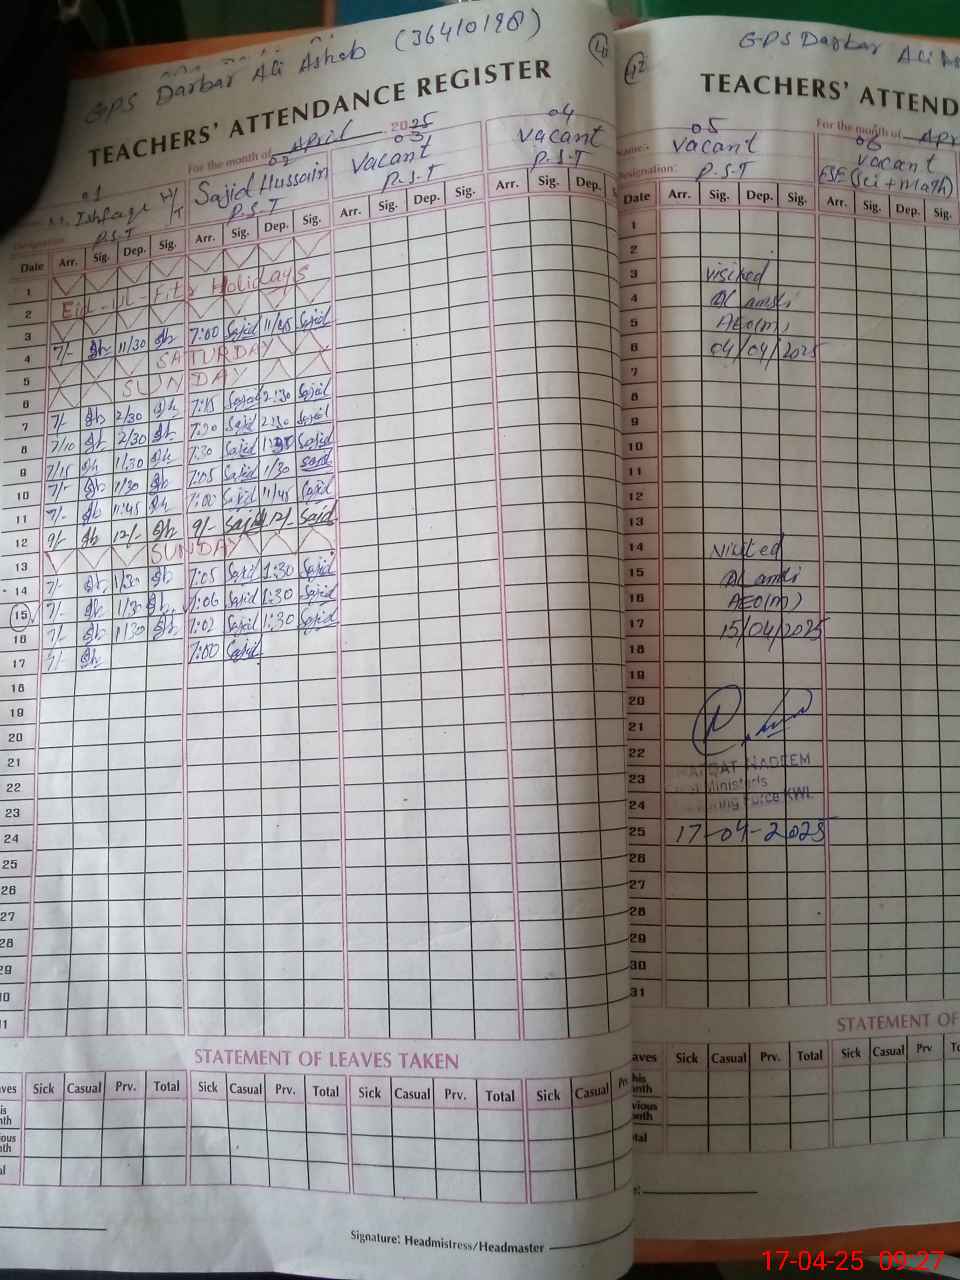 GPS Darbar Ali Asheb (36410198)
TEACHERS' ATTENDANCE REGISTER
For the month of April 2025
01 02 03 04
M. Ishfaq H/T Sajid Hussain Vacant Vacant
P.S.T P.S.T P.S.T P.S.T
Designation
Date Arr. Sig. Dep. Sig. Arr. Sig. Dep. Sig. Arr. Sig. Dep. Sig. Arr. Sig. Dep.
1
2 Eid-ul-Fitr Holidays
3
4 7/- 11/30 7:00 Sajid 11/45 Sajid
5 SATURDAY
6 SUNDAY
7 7/- 2/30 7:15 Sajid 2:30 Sajid
8 7/10 2/30 7:20 Sajid 2:30 Sajid
9 7/15 1/30 7:30 Sajid 1:30 Sajid
10 7/- 1/30 7:05 Sajid 1/30 Sajid
11 7/- 11:45 7:00 Sajid 11/45 Sajid
12 9/- 12/- 9/- Sajid 12/- Sajid
13 SUNDAY
14 7/- 1/30 7:05 Sajid 1:30 Sajid
15 7/- 1/30 7:06 Sajid 1:30 Sajid
16 7/- 1/30 7:02 Sajid 1:30 Sajid
17 7/- 7:00 Sajid
18
19
20
21
22
23
24
25
26
27
28
29
STATEMENT OF LEAVES TAKEN
Sick Casual Prv. Total Sick Casual Prv. Total Sick Casual Prv. Total Sick Casual
Signature: Headmistress/Headmaster
42
GPS Darbar Ali
TEACHERS' ATTEND
For the month of Apr
05 06
Name:- Vacant Vacant
Designation: P.S.T ESE (Sci + Math)
Date Arr. Sig. Dep. Sig. Arr. Sig. Dep. Sig.
1
2
3 visited
4
5 AEO(M)
6 04/04/2025
7
8
9
10
11
12
13
14 Visited
15
16 AEO(M)
17 15/04/2025
18
19
20
21
22 NADEEM
23 Ministers
24 Force KWL
25 17-04-2025
26
27
28
29
30
31
STATEMENT OF
Sick Casual Prv. Total Sick Casual Prv
17-04-25 09:27